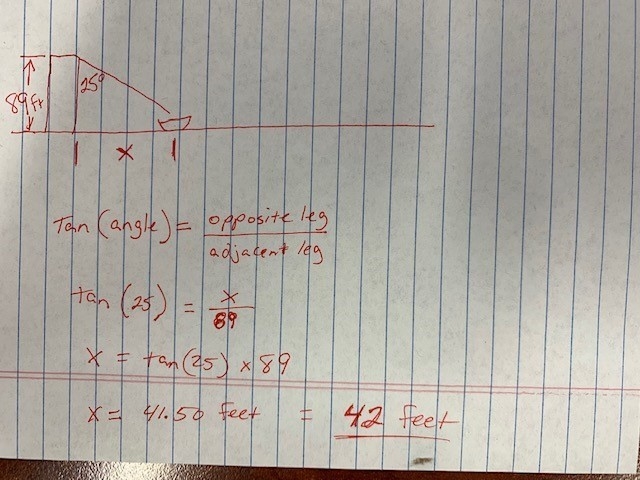 25°
89 ft
x
Tan (angle) = opposite leg / adjacent leg
tan (25) = x / 89
x = tan(25) × 89
x = 41.50 feet = 42 feet